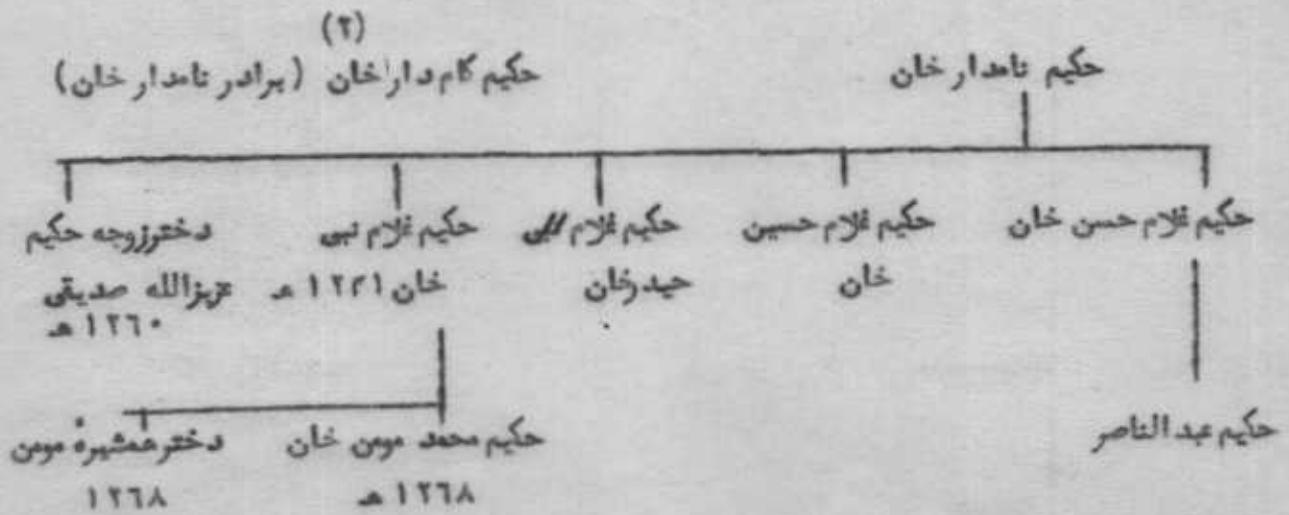 (۲)
حکیم نامدار خان
حکیم کام دار خان (برادر نامدار خان)
حکیم غلام حسن خان
حکیم غلام حسین
خان
حکیم غلام
حیدرخان
حکیم غلام نبی
خان ۱۲۴۱ ھ
دخترزوجه حکیم
عزیزالله صدیقی
۱۲۶۰ ھ
حکیم عبد الناصر
حکیم محمد مومن خان
۱۲۶۸ ھ
دخترهمشیرهٔ مومن
۱۲۶۸